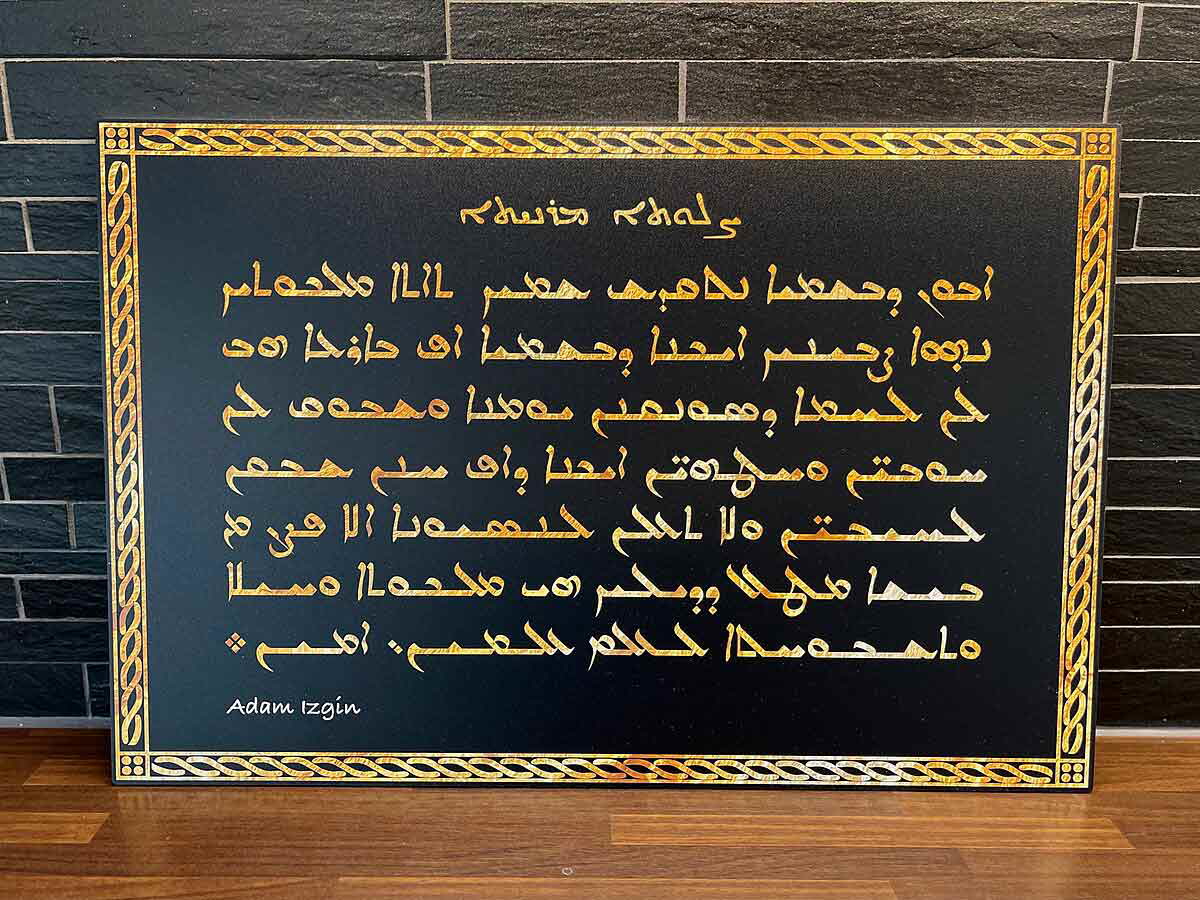 ܨܠܘܬܐ ܡܪܢܝܬܐ
ܐܒܘܢ ܕܒܫܡܝܐ ܢܬܩܕܫ ܫܡܟ ܬܐܬܐ ܡܠܟܘܬܟ
ܢܗܘܐ ܨܒܝܢܟ ܐܝܟܢܐ ܕܒܫܡܝܐ ܐܦ ܒܐܪܥܐ ܗܒ
ܠܢ ܠܚܡܐ ܕܣܘܢܩܢܢ ܝܘܡܢܐ ܘܫܒܘܩ ܠܢ
ܚܘܒ̈ܝܢ ܘܚܛܗ̈ܝܢ ܐܝܟܢܐ ܕܐܦ ܚܢܢ ܫܒܩܢ
ܠܚܝܒ̈ܝܢ ܘܠܐ ܬܥܠܢ ܠܢܣܝܘܢܐ ܐܠܐ ܦܨܢ ܡܢ
ܒܝܫܐ ܡܛܠ ܕܕܝܠܟ ܗܝ ܡܠܟܘܬܐ ܘܚܝܠܐ
ܘܬܫܒܘܚܬܐ ܠܥܠܡ ܥܠܡܝܢ܆ ܐܡܝܢ ܀
Adam Izgin